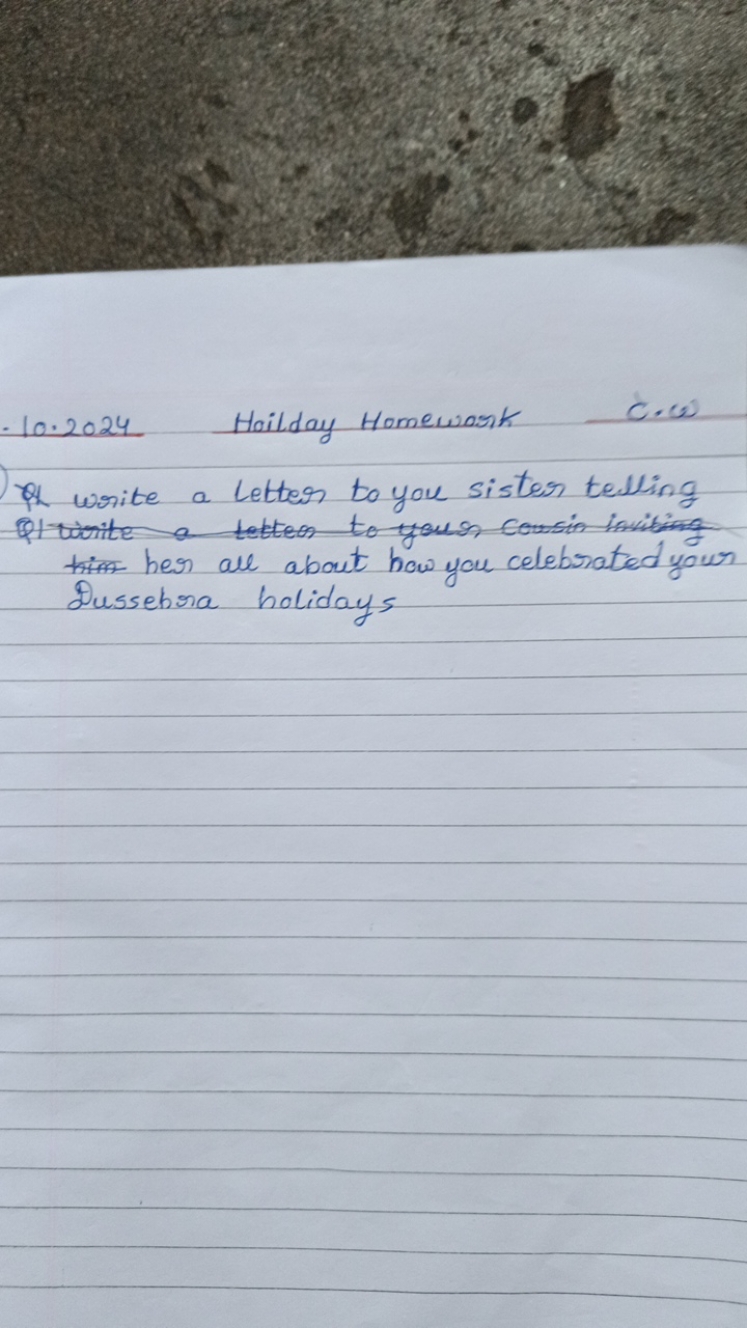 .10.2024 Hoilday Homework C.W
Q1 write a letter to you sister telling
Q1 write a letter to your cousin inviting
him her all about how you celebrated your
Dussehra holidays